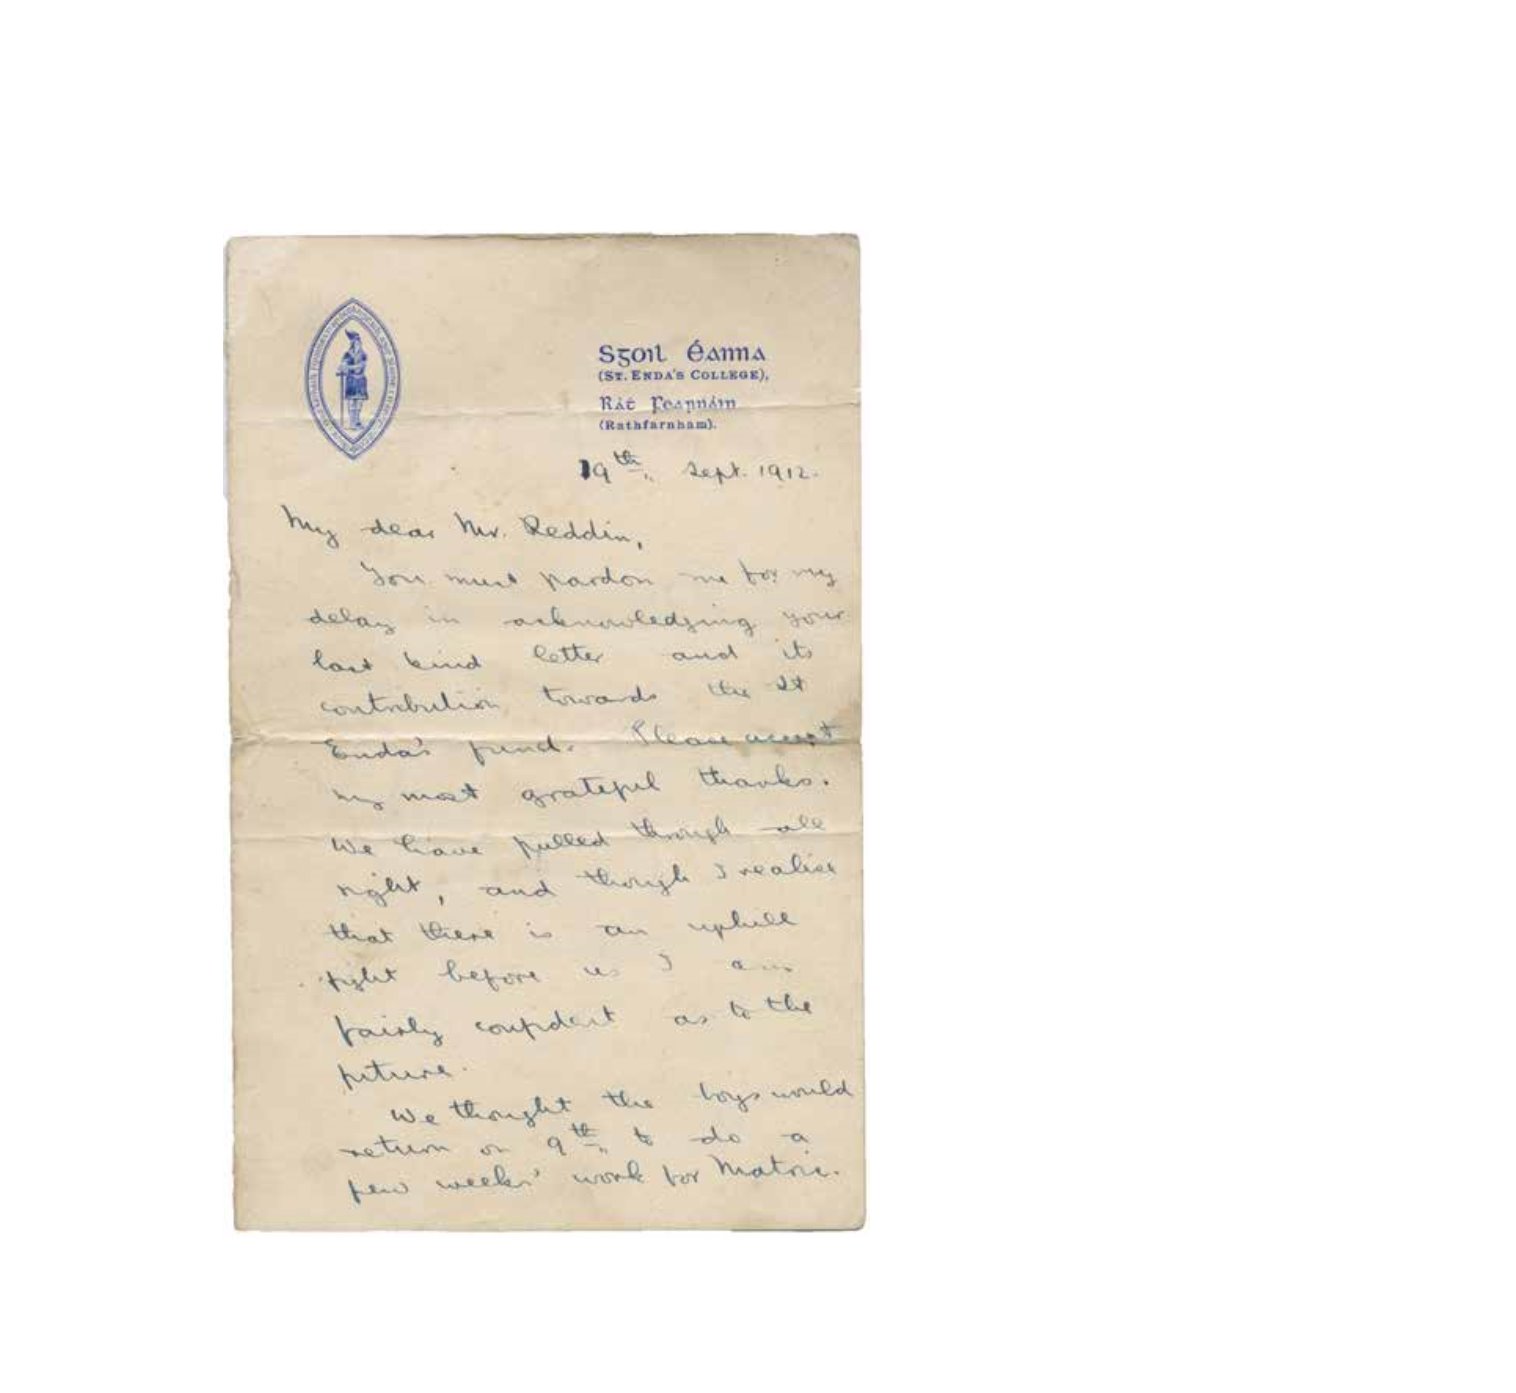 Sgoil Éanna
(St. Enda's College),
Ráṫ Fearnáin
(Rathfarnham).
19th Sept. 1912.
My dear Mr. Reddin,
You must pardon me for my
delay in acknowledging your
last kind letter and its
contribution towards the St
Enda's fund. Please accept
my most grateful thanks.
We have pulled through all
right, and though I realise
that there is an uphill
fight before us I am
fairly confident as to the
future.
We thought the boys would
return on 9th to do a
few weeks' work for Matric.